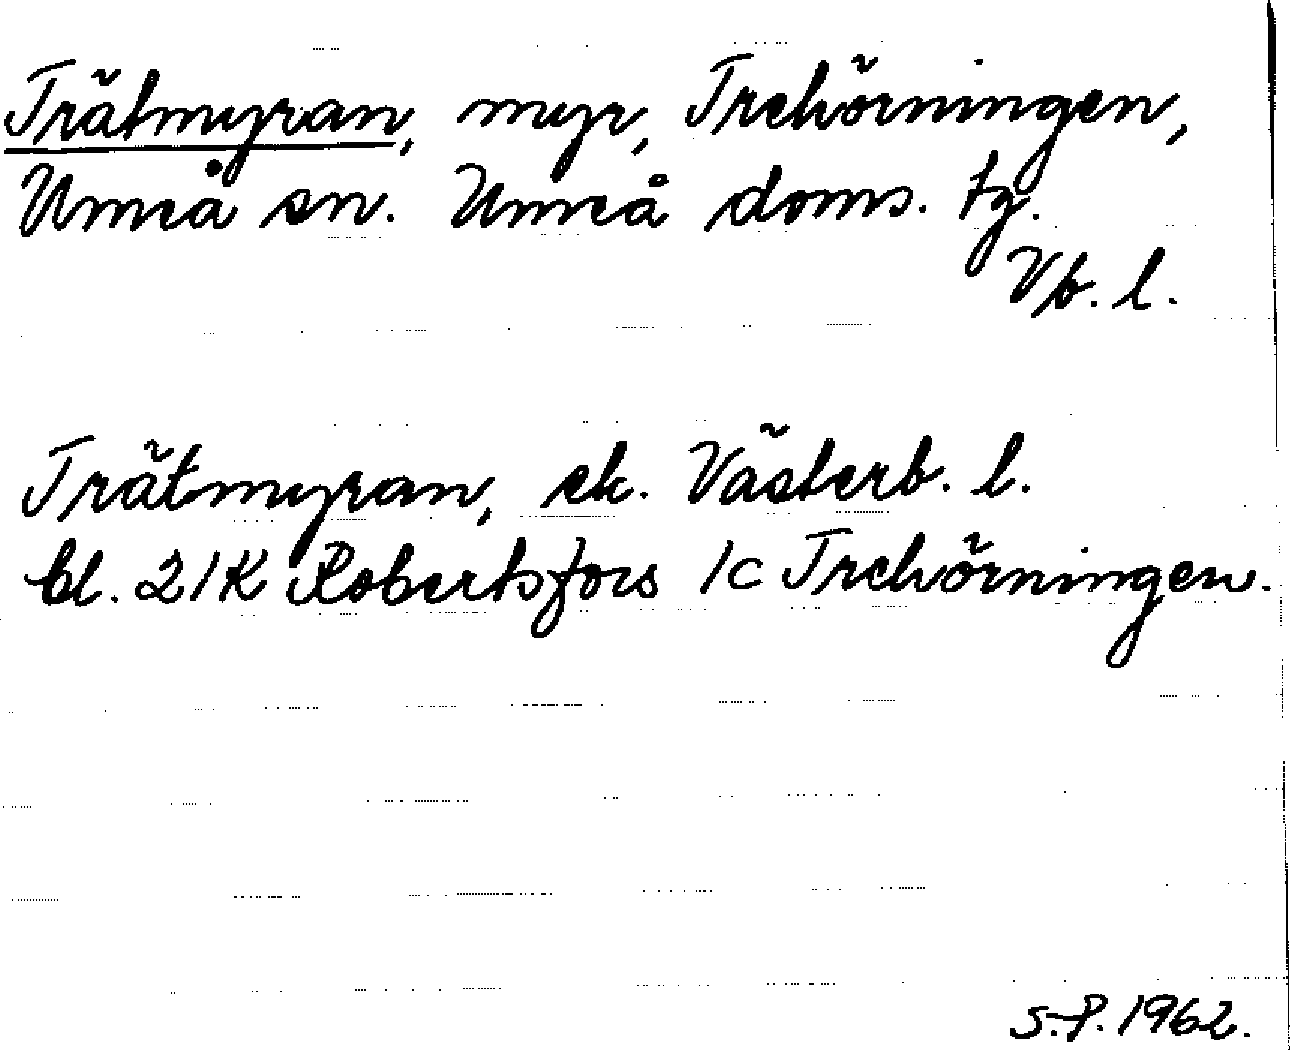 Trätmyran, myr, Trehörningen,
Umeå sn. Umeå doms. tg.
Vb. l.
Trätmyran, ek. Västerb. l.
bl. 21K Robertsfors 1c Trehörningen.
S.P. 1962.